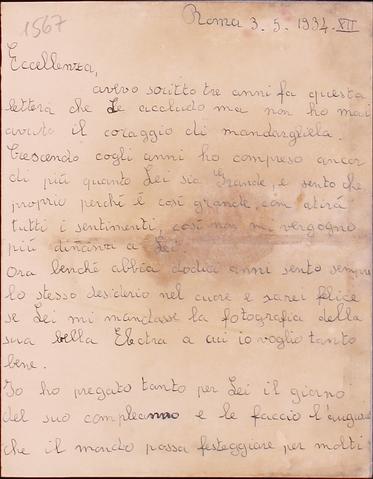 1567
Roma 3. 5. 1934. XII
Eccellenza,
avevo scritto tre anni fa questa
lettera che Le accludo ma non ho mai
avuto il coraggio di mandargliela.
Crescendo cogli anni ho compreso ancor
di più quanto Lei sia Grande, e sento che
proprio perché è così grande con
tutti i sentimenti, così non mi vergogno
più dinanzi a Lei
Ora benché abbia dodici anni sento sempre
lo stesso desiderio nel cuore e sarei felice
se Lei mi mandasse la fotografia della
sua bella Electra a cui io voglio tanto
bene.
Io ho pregato tanto per Lei il giorno
del suo compleanno e le faccio l'augurio
che il mondo possa festeggiare per molti